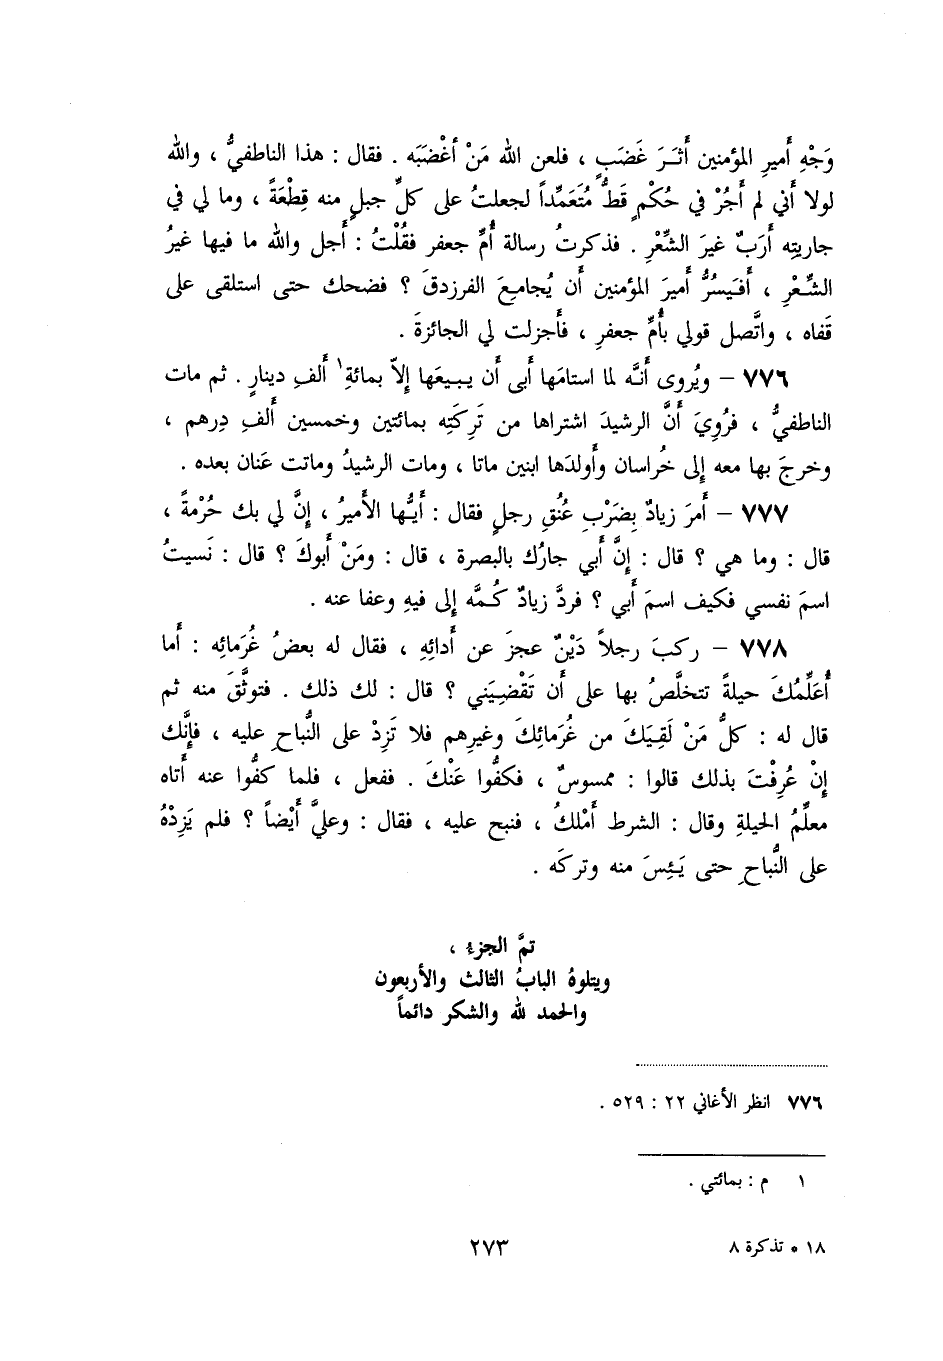 وَجْهِ أَميرِ المؤمنين أَثَرَ غَضَبٍ ، فلعن الله مَنْ أغْضَبَه . فقال : هذا الناطفيُّ ، والله
لولا أَني لم أَجُرْ في حُكْمٍ قَطُّ مُتَعَمِّداً لجعلتُ على كلِّ جبلٍ منه قِطْعَةً ، وما لي في
جاريته أَرَبٌ غيرَ الشِّعْرِ . فذكرتُ رسالة أُمِّ جعفر فقُلْتُ : أَجل والله ما فيها غيرُ
الشِّعْرِ ، أَفَيَسُرُّ أَميرَ المؤمنين أَن يُجامِعَ الفرزدقَ ؟ فضحك حتى استلقى على
قَفاه ، واتَّصل قولي بأُمِّ جعفرٍ ، فأَجزلت لي الجائزةَ .
٧٧٦ – ويُروى أَنَّه لما استامَها أَبى أَن يبيعَها إِلاّ بمائةِ١ أَلفِ دينارٍ . ثم مات
الناطفيُّ ، فرُوِيَ أَنَّ الرشيدَ اشتراها من تَرِكَتِه بمائتين وخمسين أَلفِ دِرهم ،
وخرجَ بها معه إِلى خُراسان وأَولدَها ابنين ماتا ، ومات الرشيدُ وماتت عَنان بعده .
٧٧٧ – أَمرَ زيادٌ بِضَرْبِ عُنُقِ رجلٍ فقال : أَيُّها الأَميرُ ، إِنَّ لي بك حُرْمةً ،
قال : وما هي ؟ قال : إِنَّ أَبي جارُك بالبصرة ، قال : ومَنْ أَبوكَ ؟ قال : نَسيتُ
اسمَ نفسي فكيف اسمَ أَبي ؟ فردَّ زيادٌ كُمَّه إِلى فيهِ وعفا عنه .
٧٧٨ – ركبَ رجلاً دَيْنٌ عجزَ عن أَدائِهِ ، فقال له بعضُ غُرَمائِه : أَما
أُعَلِّمُكَ حيلةً تتخلَّصُ بها على أَن تَقْضِيَني ؟ قال : لك ذلك . فتوثَّقَ منه ثم
قال له : كلُّ مَنْ لَقِيَكَ من غُرَمائِكَ وغيرِهم فلا تَزِدْ على النُّباحِ عليه ، فإِنَّك
إِنْ عُرِفْتَ بذلك قالوا : ممسوسٌ ، فكفُّوا عَنْكَ . ففعل ، فلما كفُّوا عنه أَتاه
معلِّمُ الحيلةِ وقال : الشرط أَمْلكُ ، فنبح عليه ، فقال : وعليَّ أَيْضاً ؟ فلم يَزِدْهُ
على النُّباحِ حتى يَئِسَ منه وتركَه .
تمَّ الجزءُ ،
ويتلوهُ البابُ الثالث والأربعون
والحمد لله والشكر دائماً
٧٧٦ انظر الأغاني ٢٢ : ٥٢٩ .
١ م : بمائتي .
١٨ * تذكرة ٨
٢٧٣